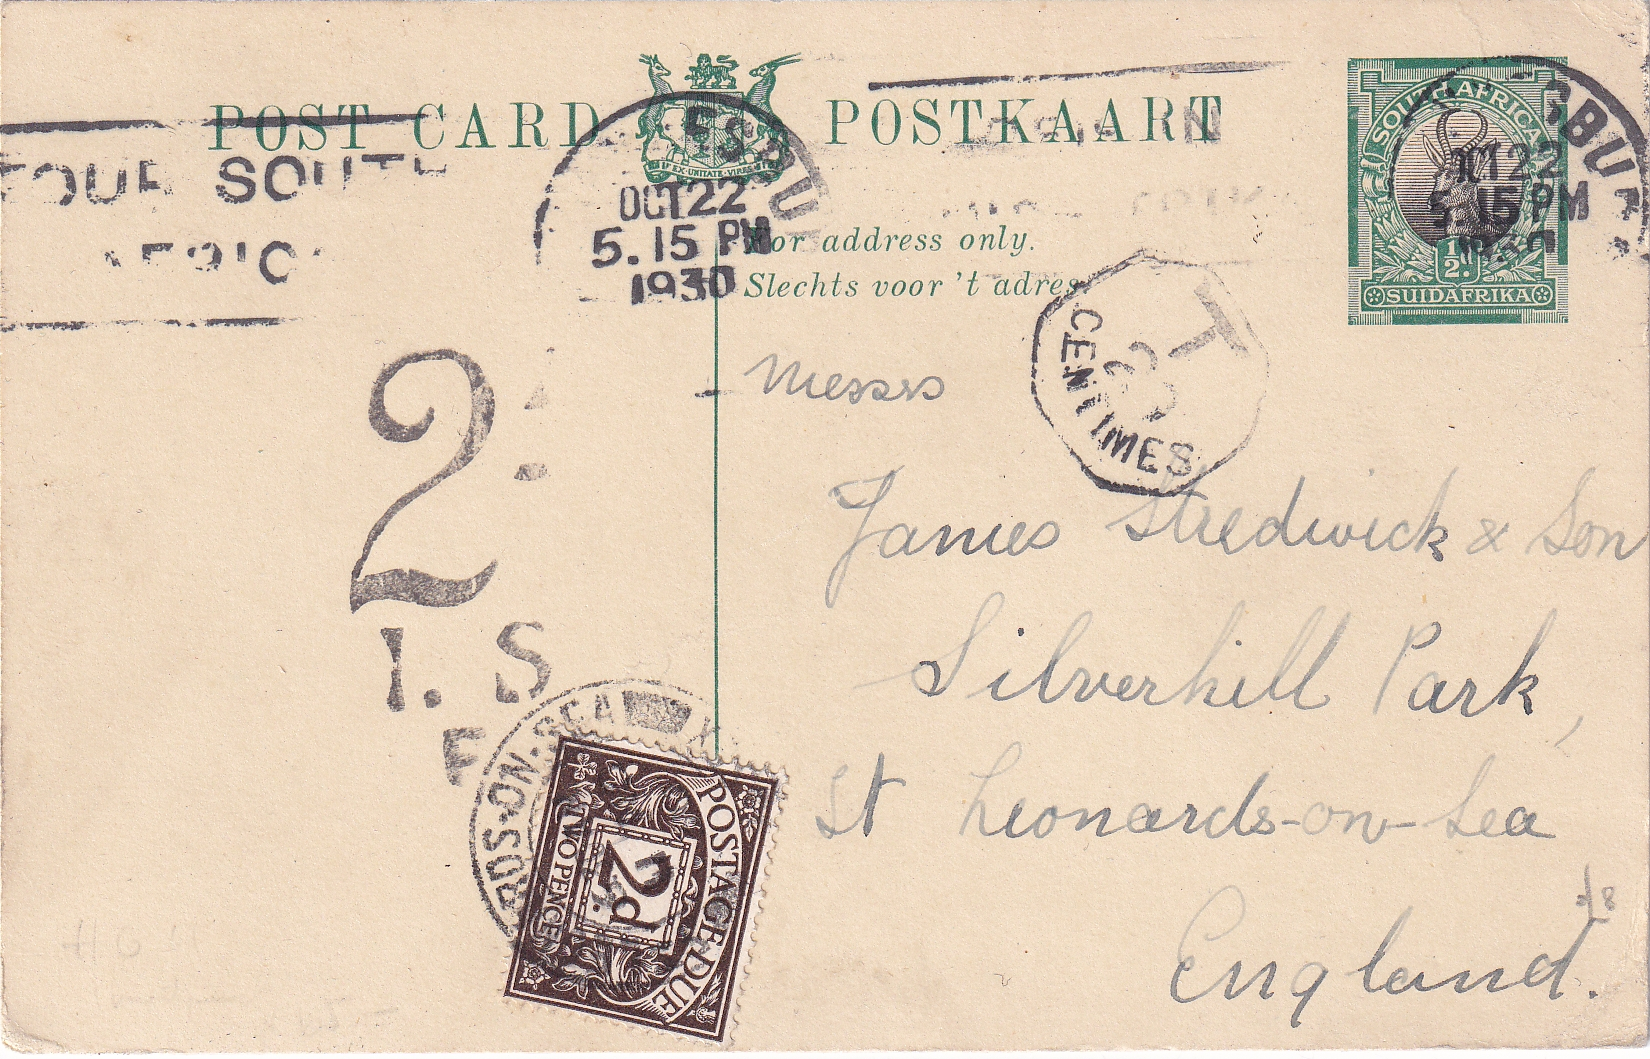 POST CARD POSTKAART
EX·UNITATE·VIRES
TOUR SOUTH
OCT 22
5.15 PM
1930
For address only.
Slechts voor 't adres
SOUTH AFRICA
OCT 22
5.15 PM
½D.
SUIDAFRIKA
T
CENTIMES
2
I. S
F
Messrs
James Stredwick & Son
Silverhill Park,
St Leonards-on-Sea
England.
RDS·ON·SEA
POSTAGE·DUE
2d
TWO PENCE